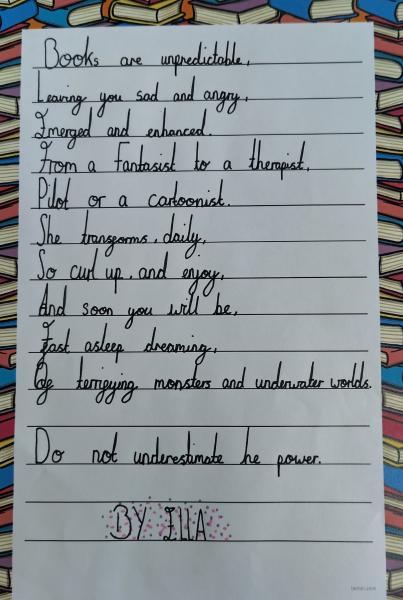 Books are unpredictable,
Leaving you sad and angry,
Imerged and enhanced.
From a fantasist to a therapist,
Pilot or a cartoonist.
She transforms, daily,
So curl up, and enjoy,
And soon you will be,
Fast asleep dreaming,
Of terrifying monsters and underwater worlds.
Do not underestimate he power.
BY ILLA